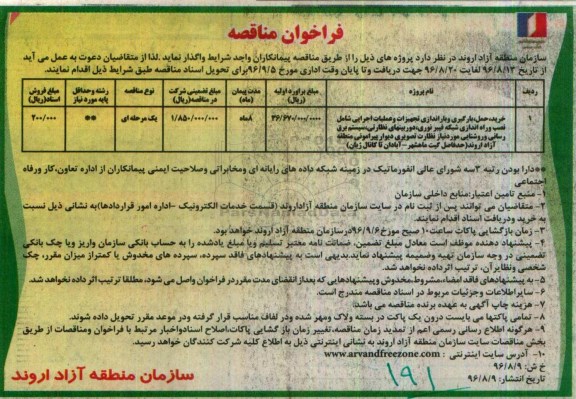 فراخوان مناقصه
سازمان منطقه آزاد اروند در نظر دارد پروژه های ذیل را از طریق مناقصه پیمانکاران واجد شرایط واگذار نماید .لذا از متقاضیان دعوت به عمل می آید
از تاریخ ۹۶/۸/۱۳ لغایت ۹۶/۸/۲۰ جهت دریافت وتا پایان وقت اداری مورخ ۹۶/۹/۵ برای تحویل اسناد مناقصه طبق شرایط ذیل اقدام نمایند.
ردیف نام پروژه مبلغ براورد اولیه (ریال) مدت پیمان (ماه) مبلغ تضمینی شرکت در مناقصه(ریال) نوع مناقصه رشته وحداقل پایه مورد نیاز مبلغ فروش اسناد(ریال)
۱ خرید،حمل،بارگیری وباراندازی تجهیزات وعملیات اجرایی شامل نصب وراه اندازی شبکه فیبر نوری،دوربینهای نظارتی،سیستم برق رسانی وروشنایی موردنیاز نظارت تصویری دیوار پیرامونی منطقه آزاد اروند(حدفاصل گیت ماهشهر –آبادان تا کانال ژیان) ۳۶/۶۷۰/۰۰۰/۰۰۰ ۸ماه ۱/۸۵۰/۰۰۰/۰۰۰ یک مرحله ای ** ۲۰۰/۰۰۰
**دارا بودن رتبه ۳سه شورای عالی انفورماتیک در زمینه شبکه داده های رایانه ای ومخابراتی وصلاحیت ایمنی پیمانکاران از اداره تعاون،کار ورفاه
اجتماعی
۱- منبع تامین اعتبار:منابع داخلی سازمان
۲- متقاضیان می توانند پس از ثبت نام در سایت سازمان منطقه آزاداروند (قسمت خدمات الکترونیک –اداره امور قراردادها)به نشانی ذیل نسبت
به خرید ودریافت اسناد اقدام نمایند.
۳- زمان بازگشایی پاکات ساعت۱۰ صبح مورخ۹۶/۹/۶درسازمان منطقه آزاد اروند خواهد بود.
۴- پیشنهاد دهنده موظف است معادل مبلغ تضمین، ضمانت نامه معتبر تسلیم ویا مبلغ یادشده را به حساب بانکی سازمان واریز ویا چک بانکی
تضمینی در وجه سازمان تهیه وضمیمه پیشنهاد نماید.بدیهی است به پیشنهادهای فاقد سپرده، سپرده های مخدوش یا کمتراز میزان مقرر، چک
شخصی ونظایر آن، ترتیب اثرداده نخواهد شد.
۵- به پیشنهادهای فاقد امضاء،مشروط،مخدوش وپیشنهادهایی که بعدازانقضای مدت مقرردر فراخوان واصل می شود، مطلقا ترتیب اثر داده نخواهد شد.
۶- سایراطلاعات وجزئیات مربوط در اسناد مناقصه مندرج است.
۷- هزینه چاپ آگهی به عهده برنده مناقصه می باشد:
۸- تمامی پاکتها می بایست درون یک پاکت در بسته ولاک ومهر شده ودر لفاف مناسب قرار گرفته ودر موعد مقرر تحویل داده شوند.
۹- هرگونه اطلاع رسانی رسمی اعم از تمدید زمان مناقصه،تغییر زمان باز گشایی پاکات،اصلاح اسنادواخبار مرتبط با فراخوان ومناقصات از طریق
بخش مناقصات سایت سازمان منطقه آزاد اروند به نشانی اینترنتی ذیل به اطلاع کلیه شرکت کنندگان خواهد رسید.
۱۰- آدرس سایت اینترنتی : www.arvandfreezone.com
خ ش: ۹۶/۸/۹
تاریخ انتشار: ۹۶/۸/۹
۱۹۱
سازمان منطقه آزاد اروند